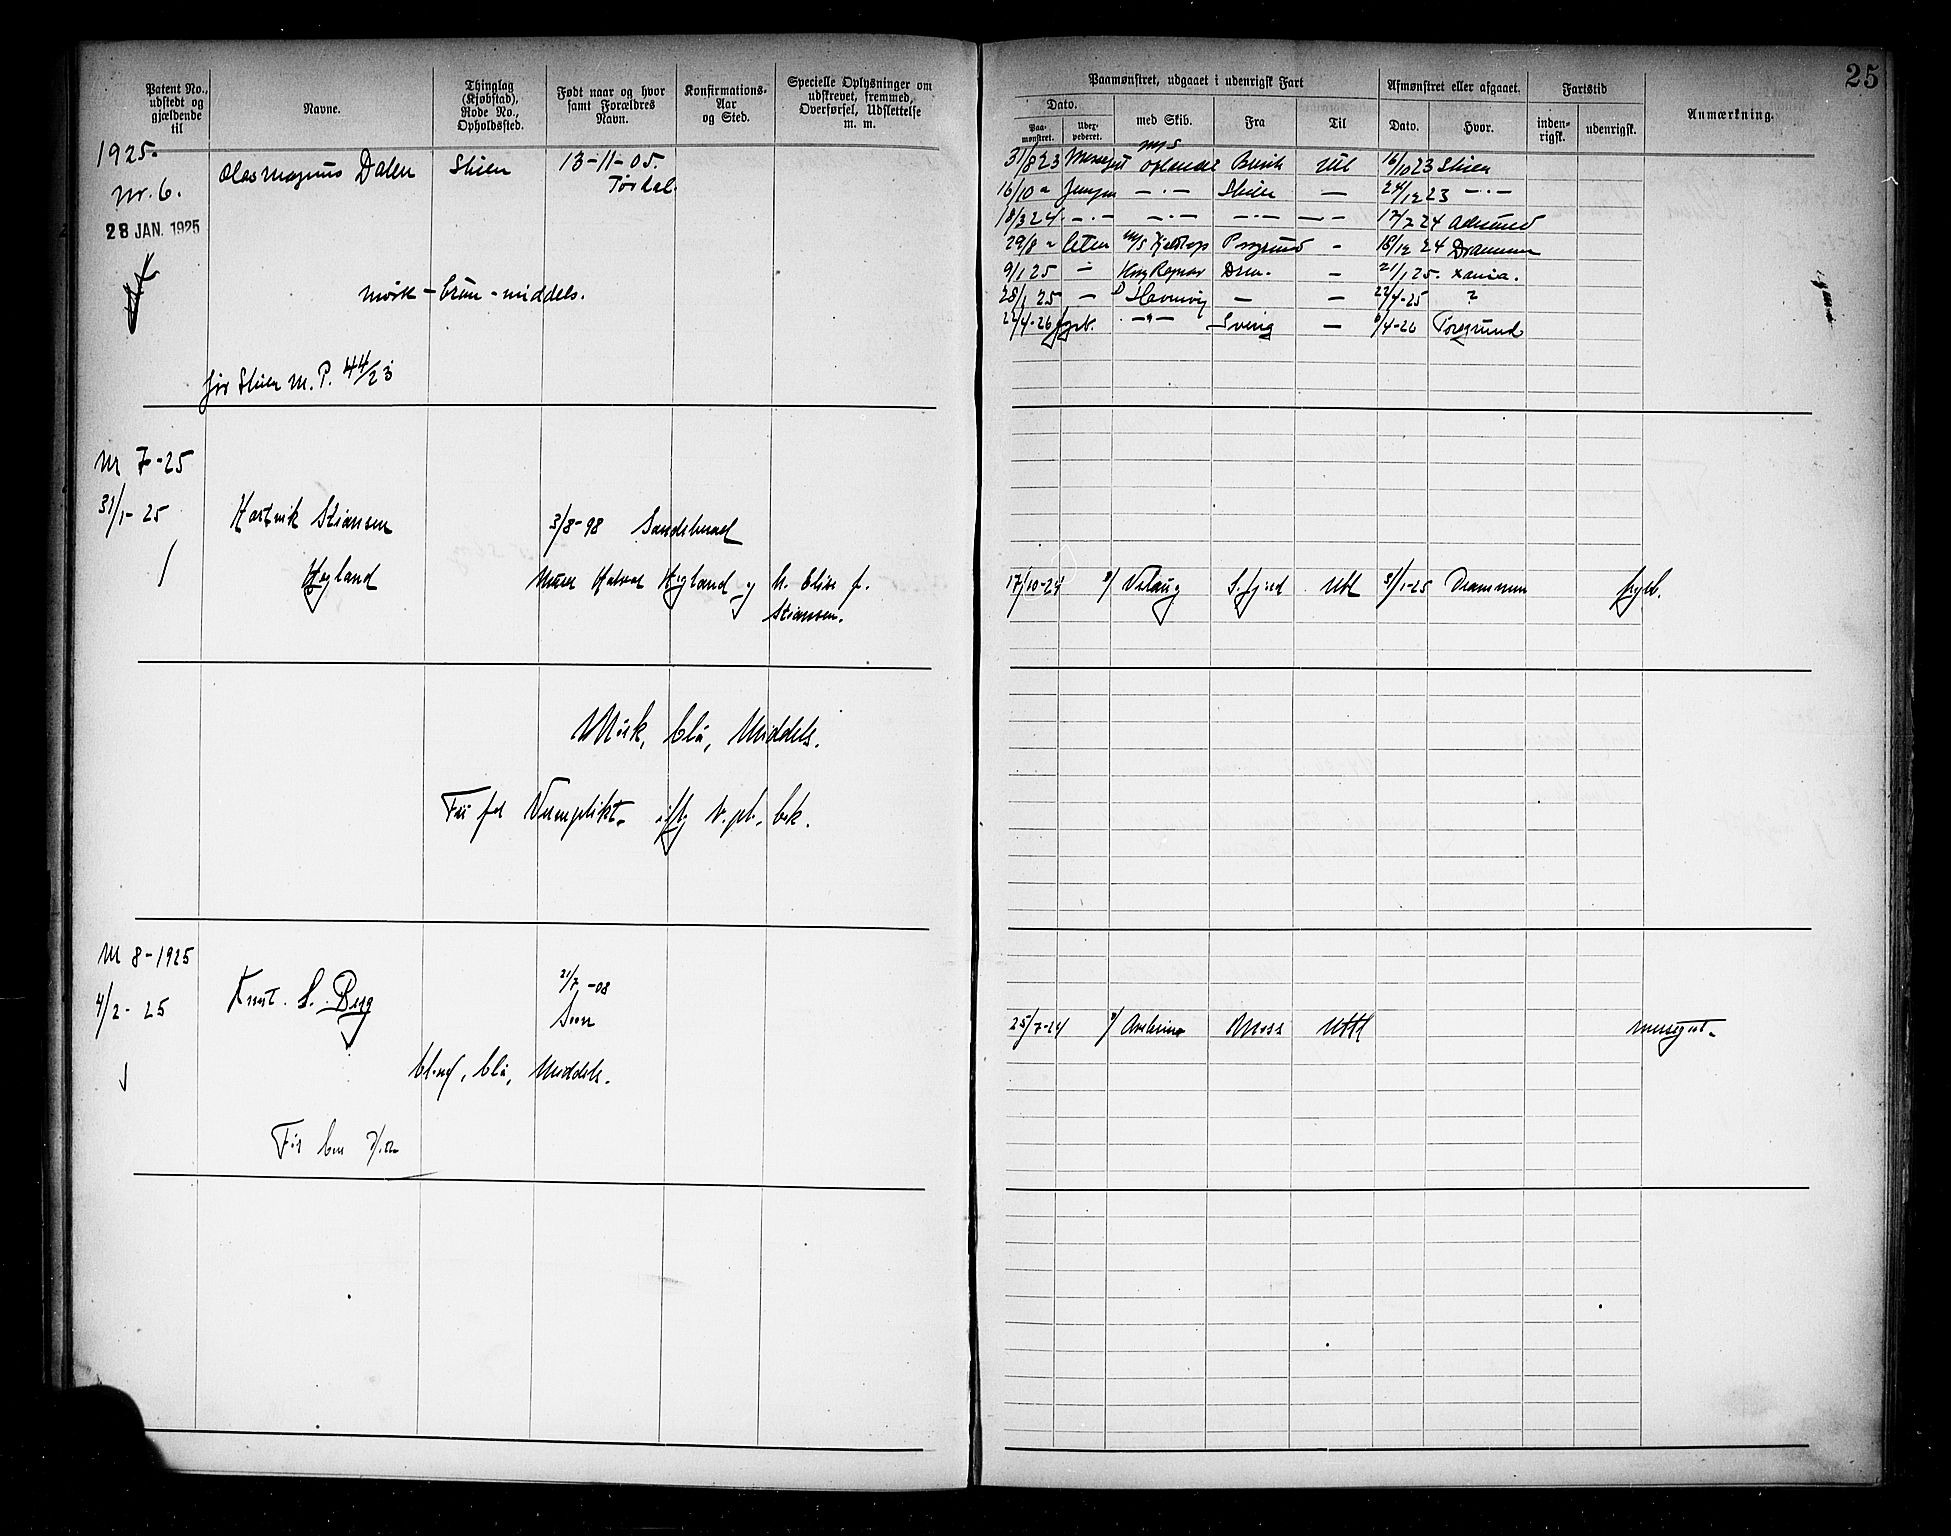 25
Patent No., udstedt og gjældende til
Navne.
Thinglag (Kjøbstad), Rode No., Opholdssted.
Født naar og hvor samt Forældres Navn.
Konfirmations-Aar og Sted.
Specielle Oplysninger om udskrevet, fremmed, Overførsel, Udslettelse m. m.
Paamønstret, udgaaet i udenrigsk Fart
Dato.
Paa-mønstret.
med Skib.
Fra
Til
Afmønstret eller afgaaet.
Dato.
Hvor.
Fartstid
inden-rigsk.
udenrigsk.
Anmærkning.
1925.
Nr. 6.
28 JAN. 1925
Olas Magnus Dalen Skien 13-11-05.
Tørdal.
mørk - brun - middels.
før Skien M. P. 44/23
31/8 23 Messegut M/S Oplandet Brevik Utl 16/10 23 Skien
16/10 " Jungm — · — Skien — 24/12 23 — · —
18/3 24 — · — — · — — · — — · — 17/7 24
29/8 " M/S Porsgrund - 18/12 24 Drammen
9/1 25 — Kong Ragnar Drm. — 21/1 25. Xania.
28/1 25 — — — 22/4-25 ?
22/4-26 fyrb. — " — Sverig — /4-26 Porsgrund
Nr 7-25
31/1-25
Hartvik Stiansen
Høgland
3/8-98
Murer Halvor Høgland og h. Elise f.
Stiansen.
17/10-24 S.fjord Utl 31/1-25 Drammen fyrb.
Mørk, blå, Middels.
Fri for Vernplikt. iflg V. pl. bok.
Nr 8-1925
4/2-25
Knut. S. Berg
21/7-08
Son
25/7-24 Moss Utl
blond, blå, Middels.